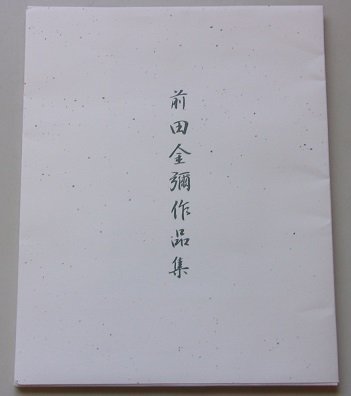 前田金彌作品集